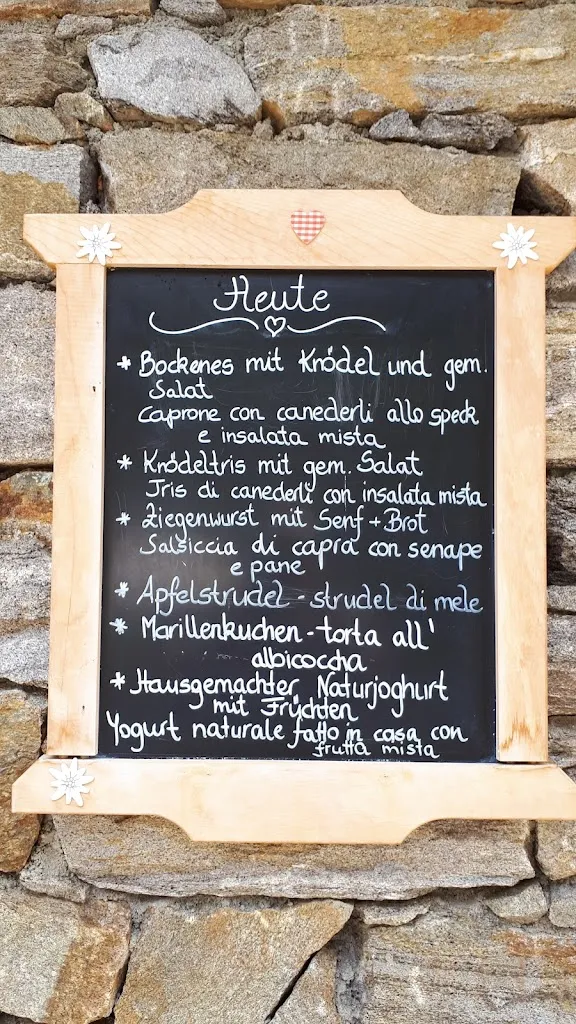 Heute
* Bockenes mit Knödel und gem.
Salat
caprone con canederli allo speck
e insalata mista
* Knödeltris mit gem. Salat
Tris di canederli con insalata mista
* Ziegenwurst mit Senf + Brot
Salsiccia di capra con senape
e pane
* Apfelstrudel - strudel di mele
* Marillenkuchen - torta all'
albicoccha
* Hausgemachter Naturjoghurt
mit Früchten
Yogurt naturale fatto in casa con
frutta mista